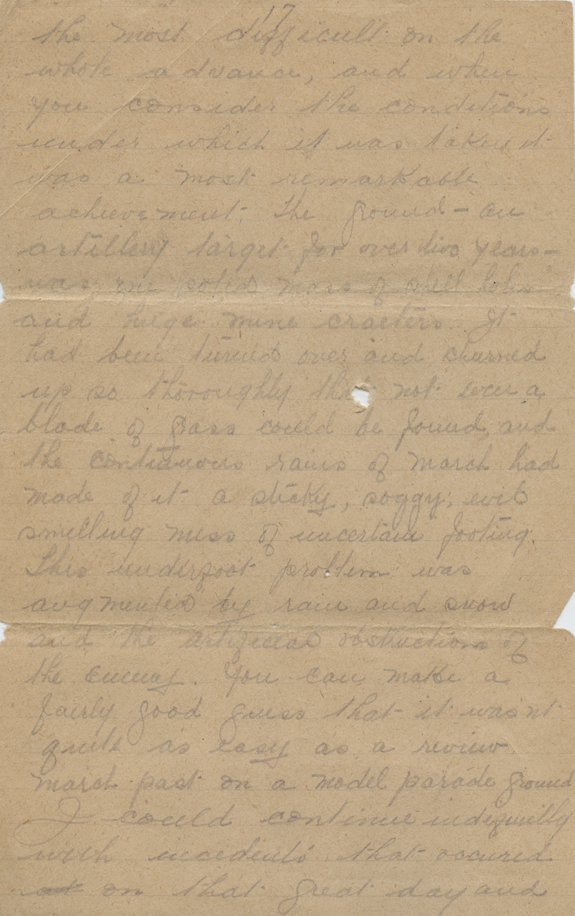 17
the most difficult on the
whole advance, and when
you consider the conditions
under which it was taken it
was a most remarkable
achievement. The ground - an
artillery target for over two years -
was one mass of shell holes
and huge mine craters. It
had been turned over and churned
up so thoroughly that not even a
blade of grass could be found, and
the continuous rains of March had
made of it a sticky, soggy, evil
smelling mess of uncertain footing.
This underfoot problem was
augmented by rain and snow
and the artificial obstructions of
the enemy. You can make a
fairly good guess that it wasn't
quite as easy as a review
march past on a model parade ground
I could continue indefinitly
with incedents that occured
on that great day and